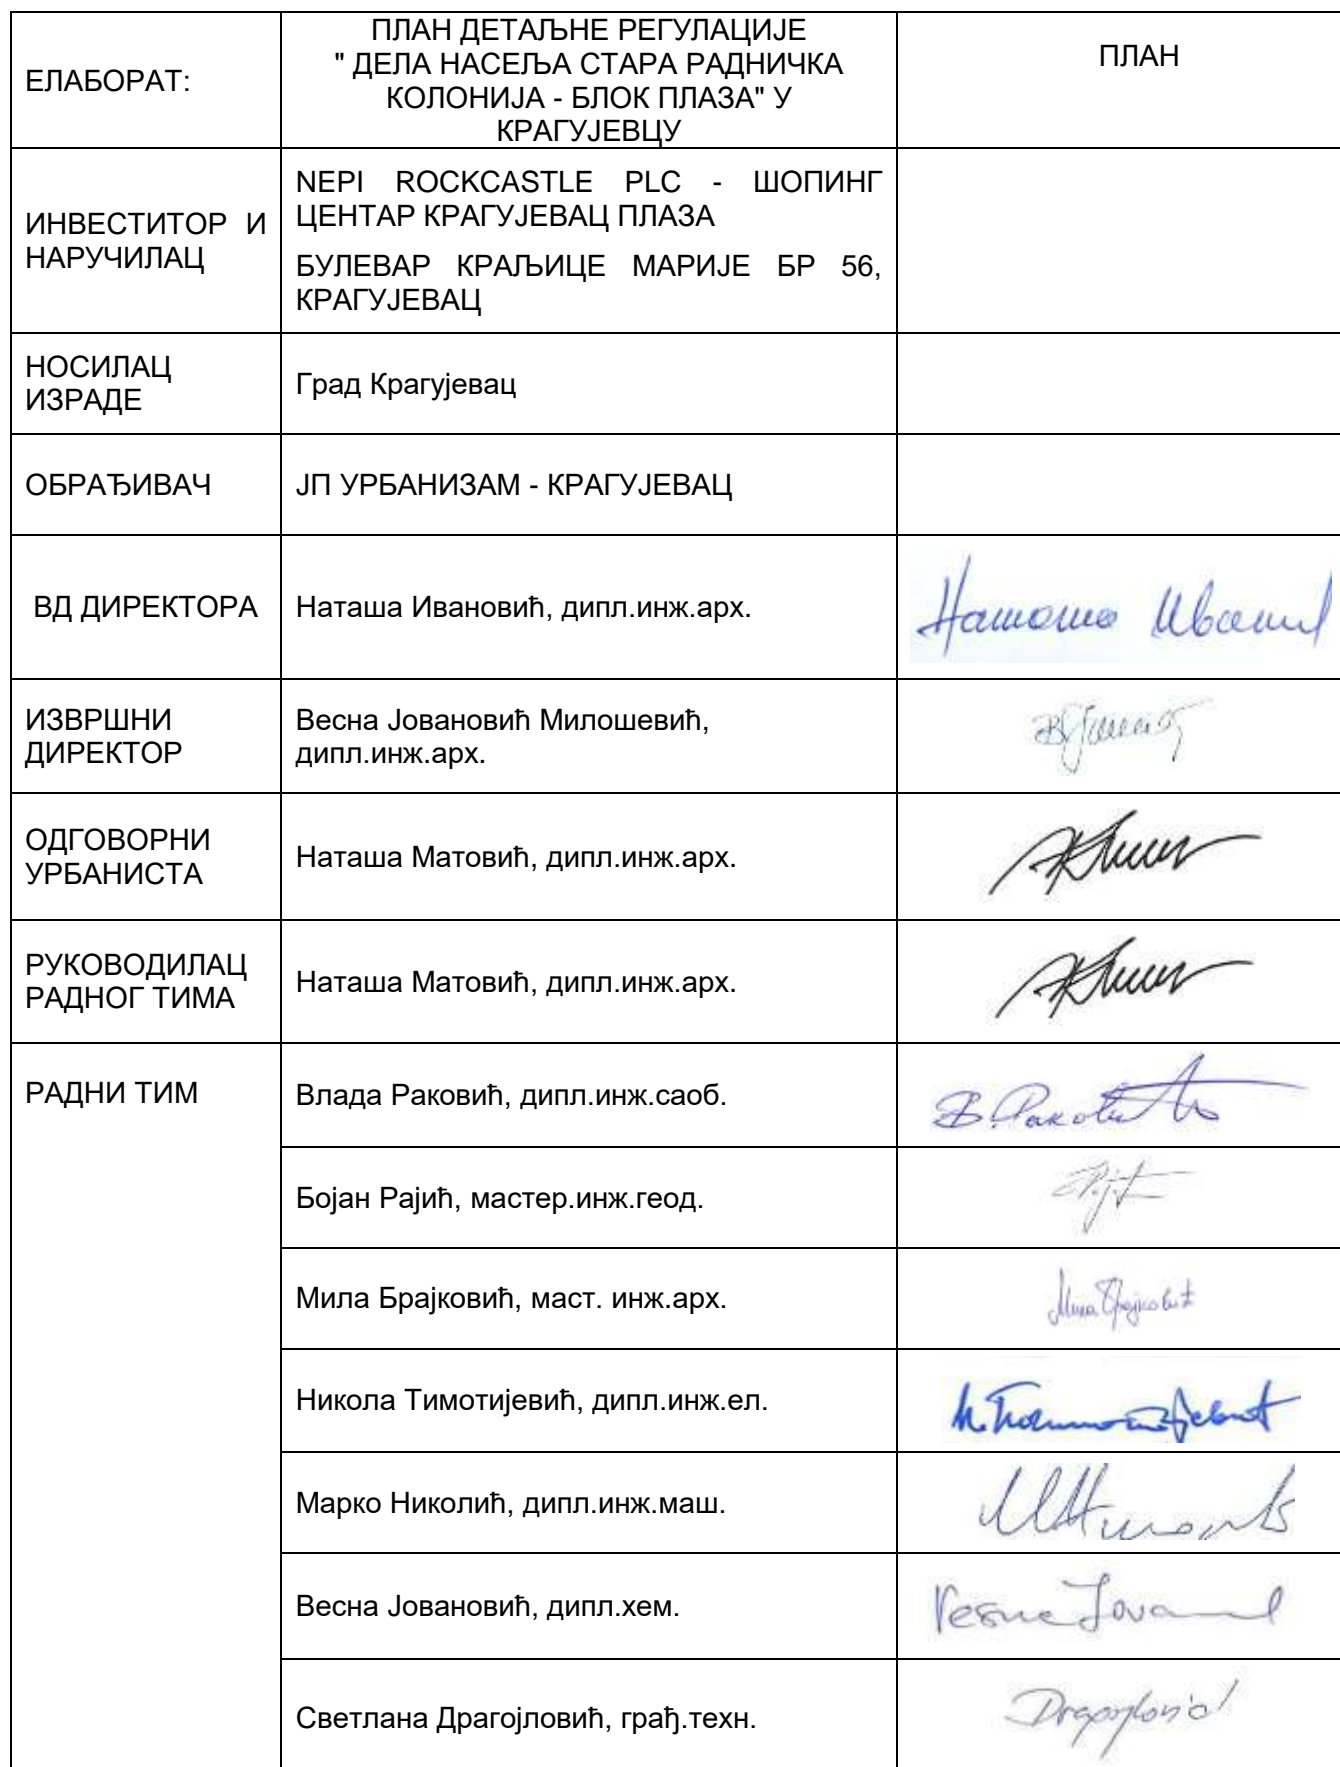 ЕЛАБОРАТ:
ПЛАН ДЕТАЉНЕ РЕГУЛАЦИЈЕ
" ДЕЛА НАСЕЉА СТАРА РАДНИЧКА
КОЛОНИЈА - БЛОК ПЛАЗА" У
КРАГУЈЕВЦУ
ПЛАН
ИНВЕСТИТОР И
НАРУЧИЛАЦ
NEPI ROCKCASTLE PLC - ШОПИНГ
ЦЕНТАР КРАГУЈЕВАЦ ПЛАЗА
БУЛЕВАР КРАЉИЦЕ МАРИЈЕ БР 56,
КРАГУЈЕВАЦ
НОСИЛАЦ
ИЗРАДЕ
Град Крагујевац
ОБРАЂИВАЧ
ЈП УРБАНИЗАМ - КРАГУЈЕВАЦ
ВД ДИРЕКТОРА
Наташа Ивановић, дипл.инж.арх.
ИЗВРШНИ
ДИРЕКТОР
Весна Јовановић Милошевић,
дипл.инж.арх.
ОДГОВОРНИ
УРБАНИСТА
Наташа Матовић, дипл.инж.арх.
РУКОВОДИЛАЦ
РАДНОГ ТИМА
Наташа Матовић, дипл.инж.арх.
РАДНИ ТИМ
Влада Раковић, дипл.инж.саоб.
Бојан Рајић, мастер.инж.геод.
Мила Брајковић, маст. инж.арх.
Никола Тимотијевић, дипл.инж.ел.
Марко Николић, дипл.инж.маш.
Весна Јовановић, дипл.хем.
Светлана Драгојловић, грађ.техн.